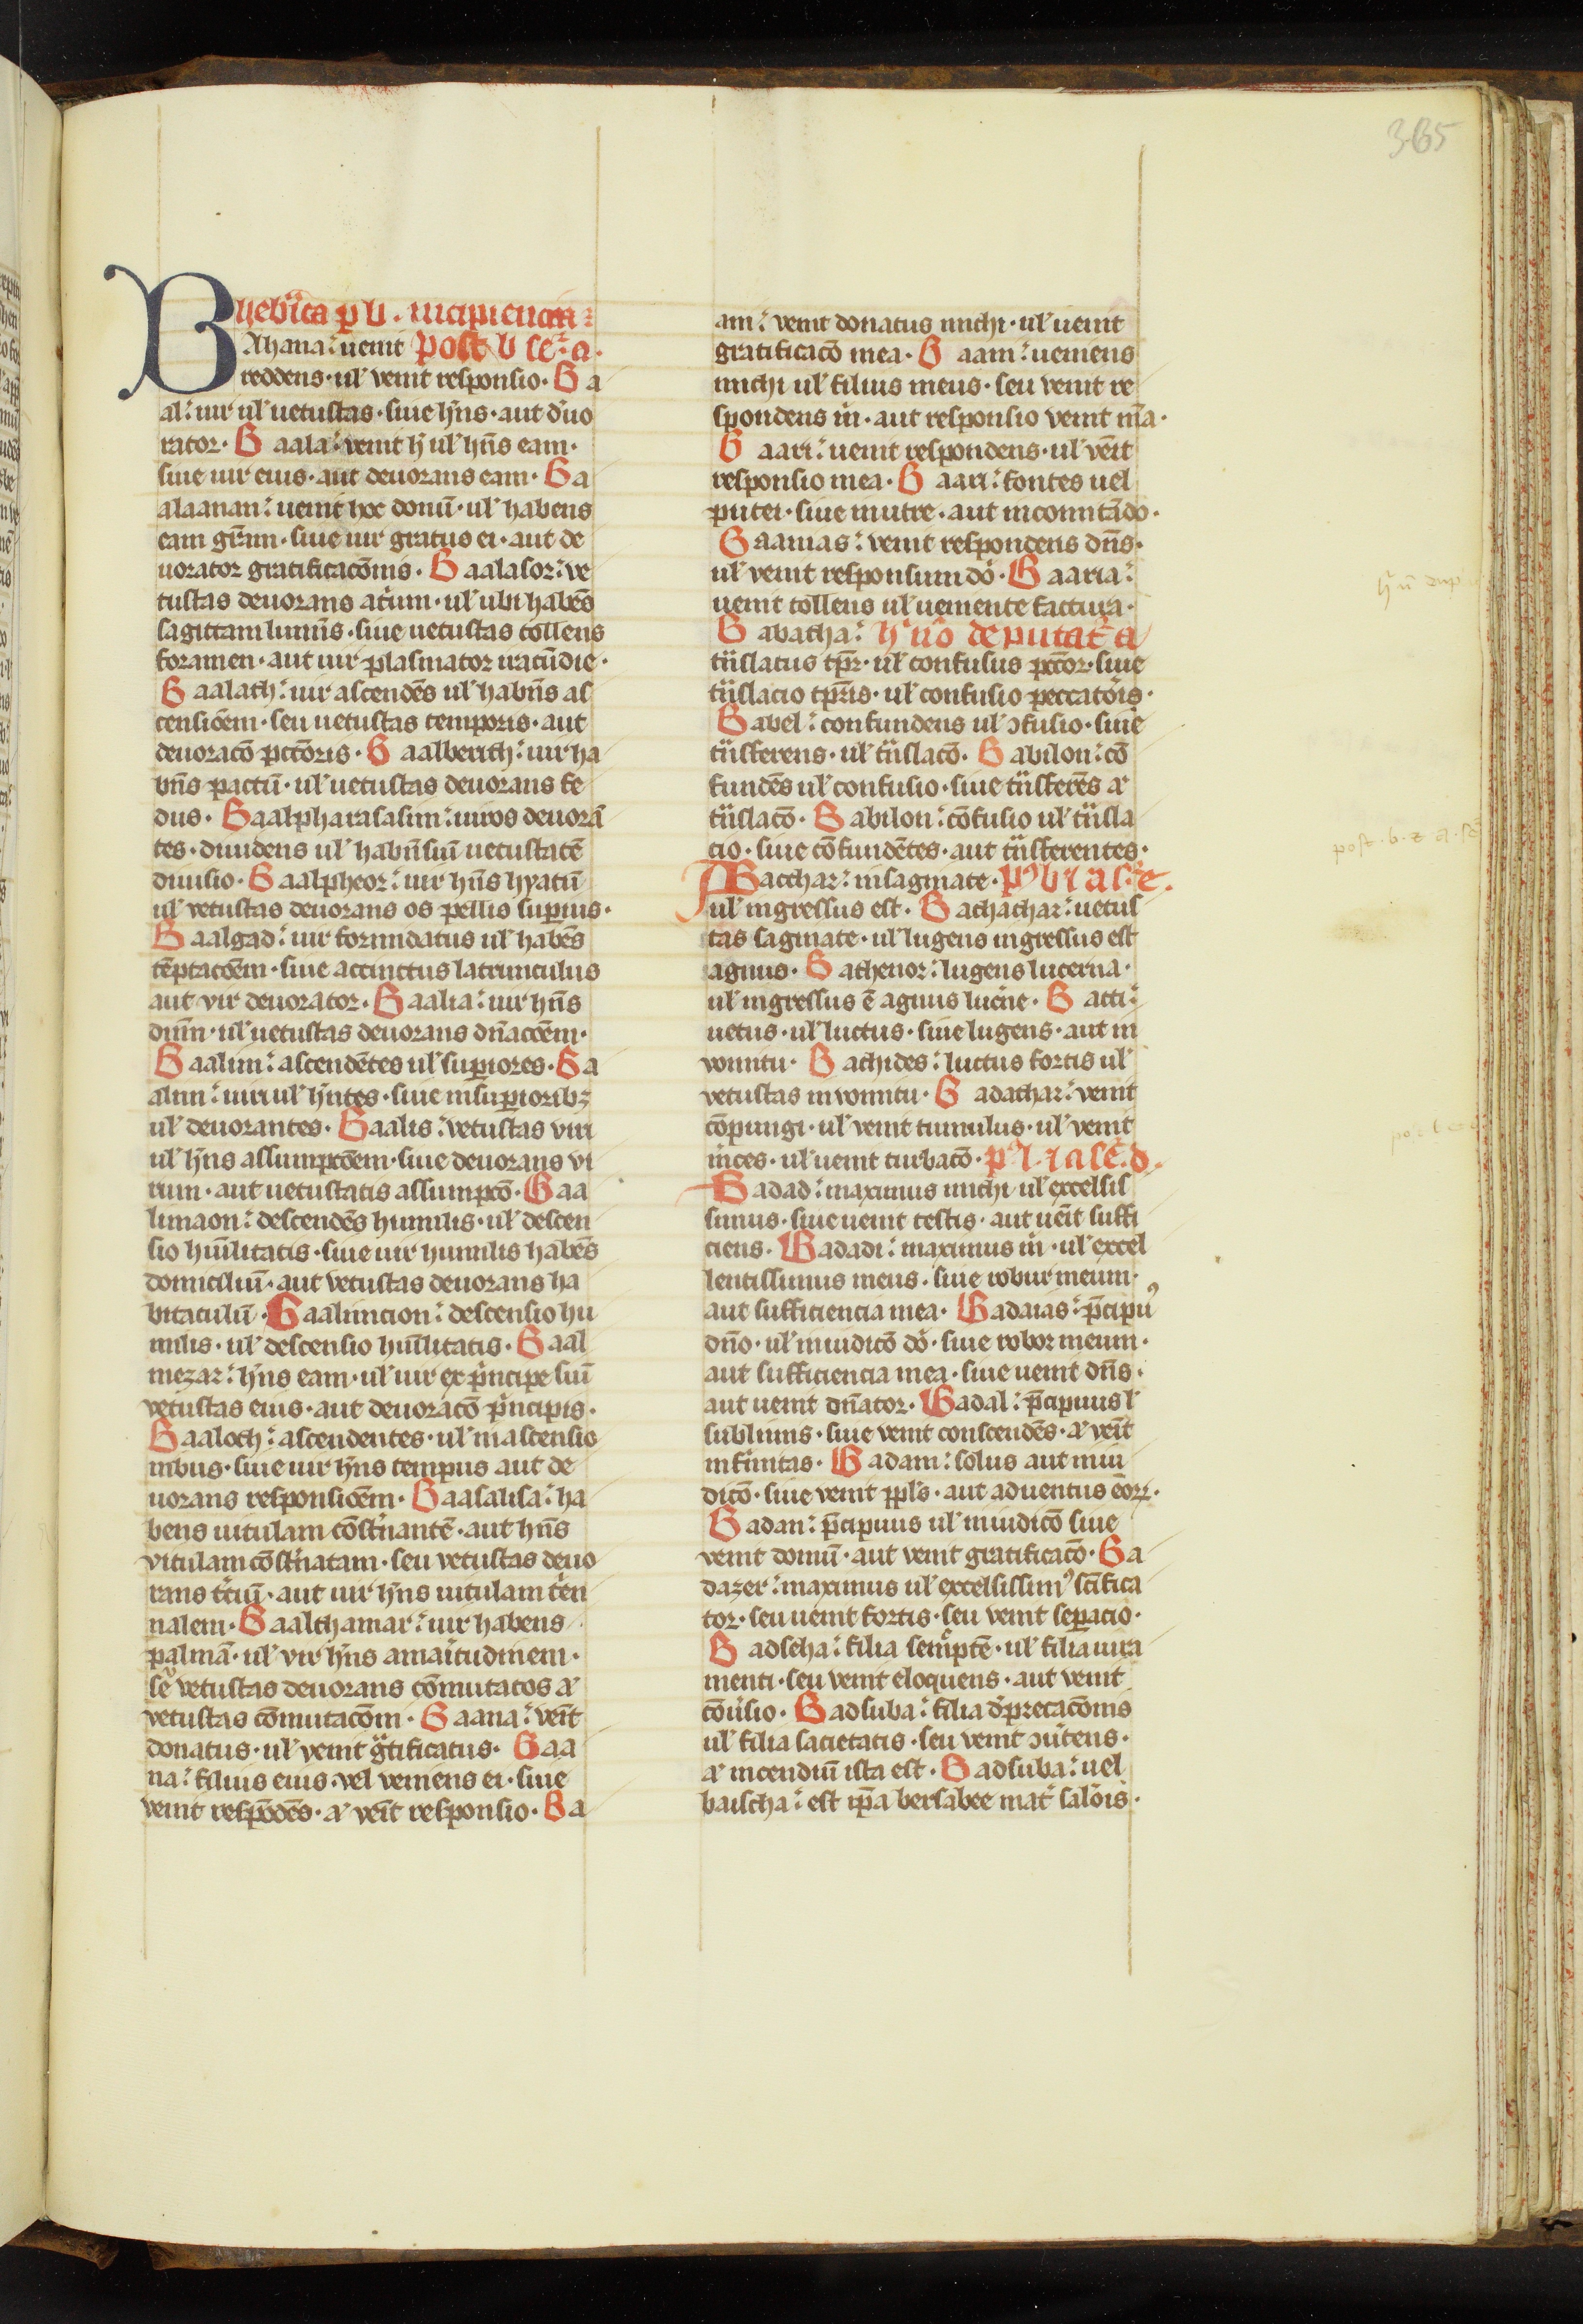 365
Hebͥca ꝑ b. incipienciū
BAhana: uenit Post b seͨ: a.
reddens· ul̉ venit responsio· Ba
al: uir ul̉ uetustas· siue hn̄s· aut duo
rator· Baala: venit h ul̉ hn̄s eam·
siue uir eius· aut deuorans eam· Ba
alaanan: uenit hoc donū· ul̉ habens
eam gr̄am· siue uir gratus ei· aut de
uorator gratificacōnis· Baalasor: ve
tustas deuorans atriū· ul̉ ubi habēs
sagittam luminis· siue uetustas tollens
foramen· aut uir plasmator iracūdie·
Baalath: uir ascendēs ul̉ habn̄s as
censiōem· seu uetustas temporis· aut
deuoracō pctōris· Baalberith: uir ha
bn̄s pactū· ul̉ uetustas deuorans fe
dus· Baalpharasasim: uiros deuorā
tes· diuidens ul̉ habn̄ suū uetustatē
diuisio· Baalpheor: uir hn̄s hyatū
ul̉ vetustas deuorans os pellis supius·
Baalgad: uir formidatus ul̉ habēs
tēptacōem· siue accinctus latrunculus
aut vir deuorator· Baalia: uir hn̄s
dnm̄· ul̉ uetustas deuorans dn̄acōem·
Baalim: ascendētes ul̉ supiores· Ba
alim: uiri ul̉ hn̄tes· siue in supioribꝫ
ul̉ deuorantes· Baalis: vetustas viri
ul̉ hn̄s assumpcōem· siue deuorans vi
rum· aut uetustatis assumpcō· Baa
limaon: descendēs humilis· ul̉ descen
sio hūilitatis· siue uir humilis habēs
domicilium· aut vetustas deuorans ha
bitaculū· Baalimcion: descensio hu
milis· ul̉ descensio hūilitatis· Baal
mezar: hn̄s eam· ul̉ uir ex pͥncipe siū
vetustas eius· aut deuoracō pͥncipis·
Baaloch: ascendentes· ul̉ in ascensio
nibus· siue uir hn̄s tempus aut de
uorans responsiōem· Baasalisa: ha
bens uitulam cōstͨnantē· aut hn̄s
vitulam cōstͨnatam· seu vetustas deuo
rans tͨciū· aut uir hn̄s uitulam tͨen
nalem· Baalthamar: uir habens
palmā· ul̉ vir hn̄s amaͥtudinem·
seu vetustas deuorans cōmutatos aͭ
vetustas cōmutacōm· Baana: venīt
donatus· ul̉ venit gͣtificatus· Baa
na: filius eius· vel veniens ei· siue
venit respōdēs· aͭ venīt responsio· Ba
am: venit donatus michi· ul̉ uenit
gratificacō mea· Baam: ueniens
michi ul̉ filius meus· seu venit re
spondens m̄· aut responsio venit mͣ·
Baari: uenit respondens· ul̉ venīt
responsio mea· Baari: fontes uel
putei· siue mutre· aut in comitādo·
Baanias: venit respondens dn̄s·
ul̉ venit responsum dō· Baaria:
uenit tollens ul̉ ueniente factura·
Babatha: hͨ nō deputatͬ a
tn̄slatus tpr̄· ul̉ confusus pctōr· siue
tn̄slacio tpr̄is· ul̉ confusio peccatōris·
Babel: confundens ul̉ ↄfusio· siue
tn̄sferens· ul̉ tn̄slacō· Babilon: cō
fundēs ul̉ confusio· siue tn̄sferēs aͭ
tn̄slacō· Babilon: cōfusio ul̉ tn̄sla
cio· siue cōfundētes· aut tn̄sferentes·
Bacchar: in saginate· Pͦ b ⁊ a seͨ· c.
ul̉ ingressus est· Bachachar: uetus
tas saginate· ul̉ lugens ingressus est
agnus· Bathenor: lugens lucerna·
ul̉ ingressus ē agnus lucͥne· Batti:
uetus· ul̉ luctus· siue lugens· aut in
vomitu· Bachides: luctus fortis ul̉
vetustas in vomitu· Badachar: venit
cōpungi· ul̉ venit tumulus· ul̉ venit
īnces· ul̉ uenit turbacō· pͦ b ⁊ a seͨ· d.
Badad: maximus michi ul̉ excelsis
simus· siue uenit testis· aut uenīt suffi
ciens· Badadi: maximus m̄· ul̉ excel
lentissimus meus· siue robur meum·
aut sufficiencia mea· Badaias: pͥcipuꝰ
dn̄o· ul̉ in iudicō dō· siue robor meum·
aut sufficiencia mea· siue uenit dn̄s·
aut uenit dn̄ator· Badal: pͥcipuus ul̉
sublimis· siue venit conscendēs· aͭ venīt
infͥmitas· Badam: solus aut in iu
dicō· siue venit ppl̄s· aut aduentus eoꝝ·
Badan: pͥcipuus ul̉ in iudicō siue
venit domū· aut venit gratificacō· Ba
dazer: maximus ul̉ excelsissimꝰ scīfica
tor· seu uenit fortis· seu venit sepacio·
Badseha: filia sempͥtē· ul̉ filia iura
menti· seu venit eloquens· aut venit
cōuͥsio· Badsuba: filia dͥprecacōnis
ul̉ filia sacietatis· seu venit ↄuͥtens·
aͭ incendiū ista est· Badsuba: uel
baischa: est ipa bersabee matͬ salōis·
post · b · z · a · se